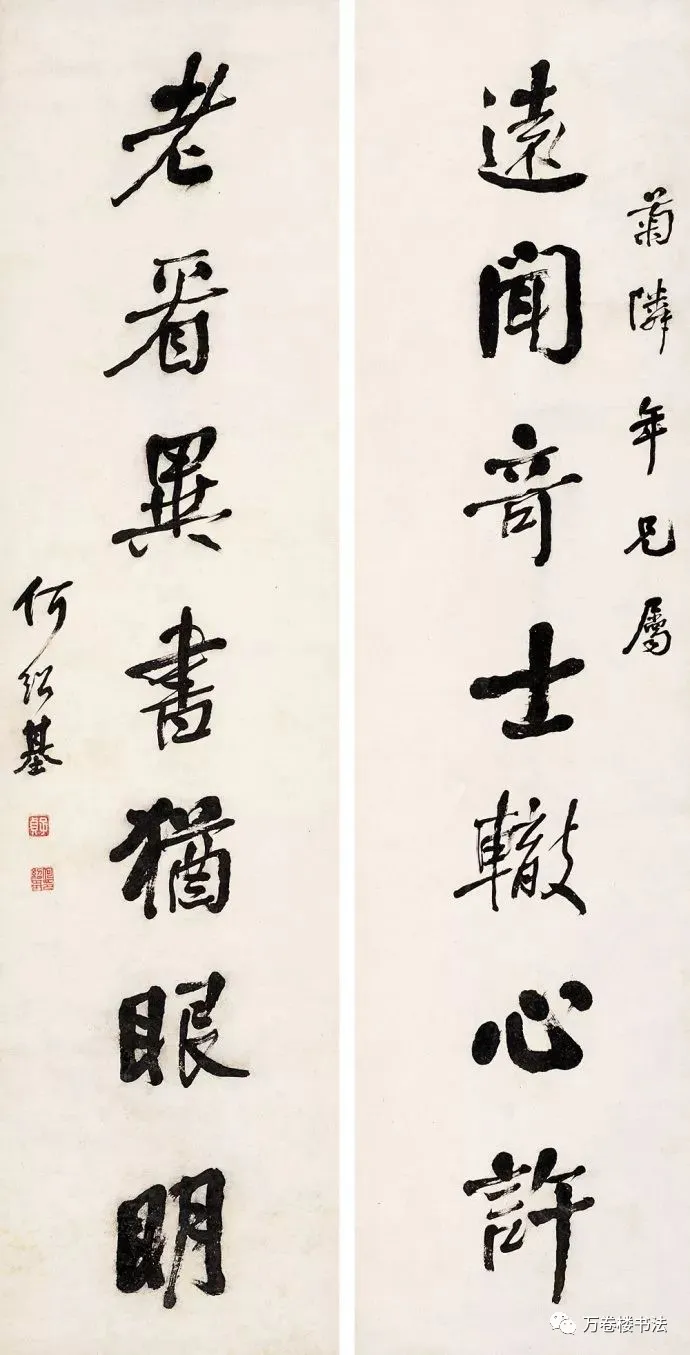 菊隣年兄屬
遠聞竒士轍心許
老看異書猶眼明
何紹基
子貞
万卷楼书法